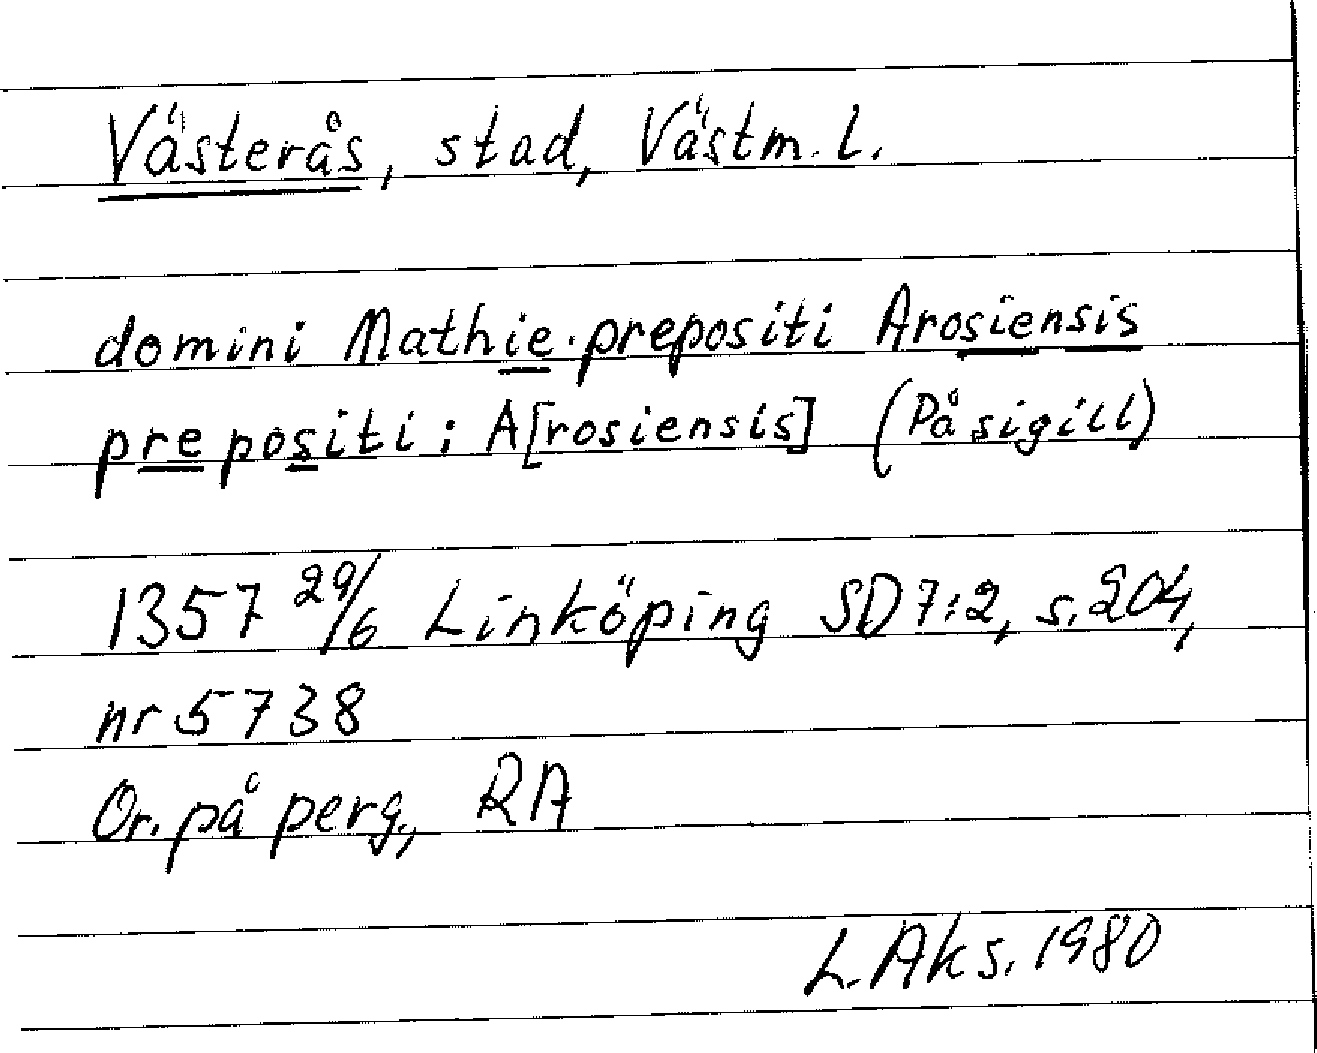 Västerås, stad, Västm. l.
domini Mathie. prepositi Arosiensis
prepositi: A[rosiensis] (På sigill)
1357 29/6 Linköping SD 7:2, s. 204,
nr 5738
Or. på perg., RA
L. Aks. 1980